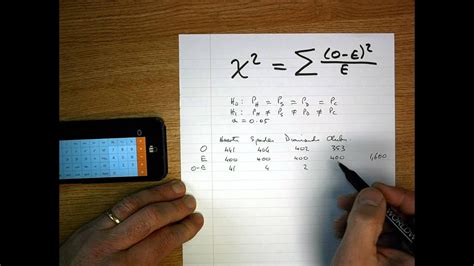 χ² = Σ (O-E)² / E
H₀: P_H = P_S = P_D = P_C
H₁: P_H ≠ P_S ≠ P_D ≠ P_C
α = 0.05
Hearts Spades Diamonds Clubs
O 441 404 402 353
E 400 400 400 400 1,600
O-E 41 4 2